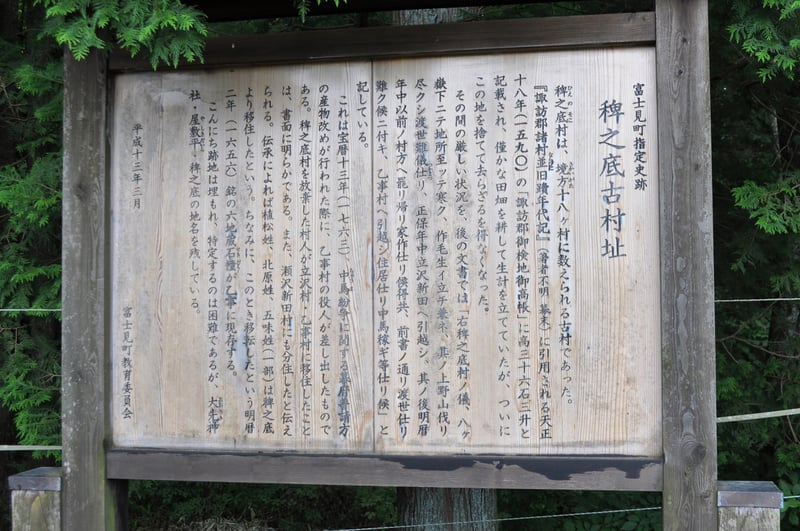 富士見町指定史跡
稗之底古村址
稗之底村は、境方十八ヶ村に数えられる古村であった。
『諏訪郡諸村並旧蹟年代記』（著者不明・幕末）に引用される天正
十八年（一五九〇）の「諏訪郡御検地御高帳」に高三十六石三升と
記載され、僅かな田畑を耕して生計を立てていたが、ついに
この地を捨てて去らざるを得なくなった。
その間の厳しい状況を、後の文書では「右稗之底村ノ儀、八ヶ
嶽下ニテ地所至ッテ寒ク、作毛生イ立チ兼ネ、其ノ上野山伐リ
尽クシ渡世難儀仕リ、正保年中立沢新田ヘ引越シ、其ノ後明暦
年中以前ノ村方ヘ罷リ帰リ家作仕リ候得共、前書ノ通リ渡世仕リ
難ク候ニ付キ、乙事村ヘ引越シ住居仕リ中馬稼ギ等仕リ候」と
記している。
これは宝暦十三年（一七六三）、中馬紛争に関する幕府評定方
の産物改めが行われた際に、乙事村の役人が差し出したもので
ある。稗之底村を放棄した村人が立沢村、乙事村に移住したこと
は、書面に明らかである。また、瀬沢新田村にも分住したと伝え
られる。伝承によれば植松姓、北原姓、五味姓（一部）は稗之底
より移住したという。ちなみに、このとき移転したという明暦
二年（一六五六）銘の六地蔵石幢が乙事に現存する。
こんにち跡地は埋もれ、特定するのは困難であるが、大先神
社、屋敷平・稗之底の地名を残している。
平成十三年三月
富士見町教育委員会